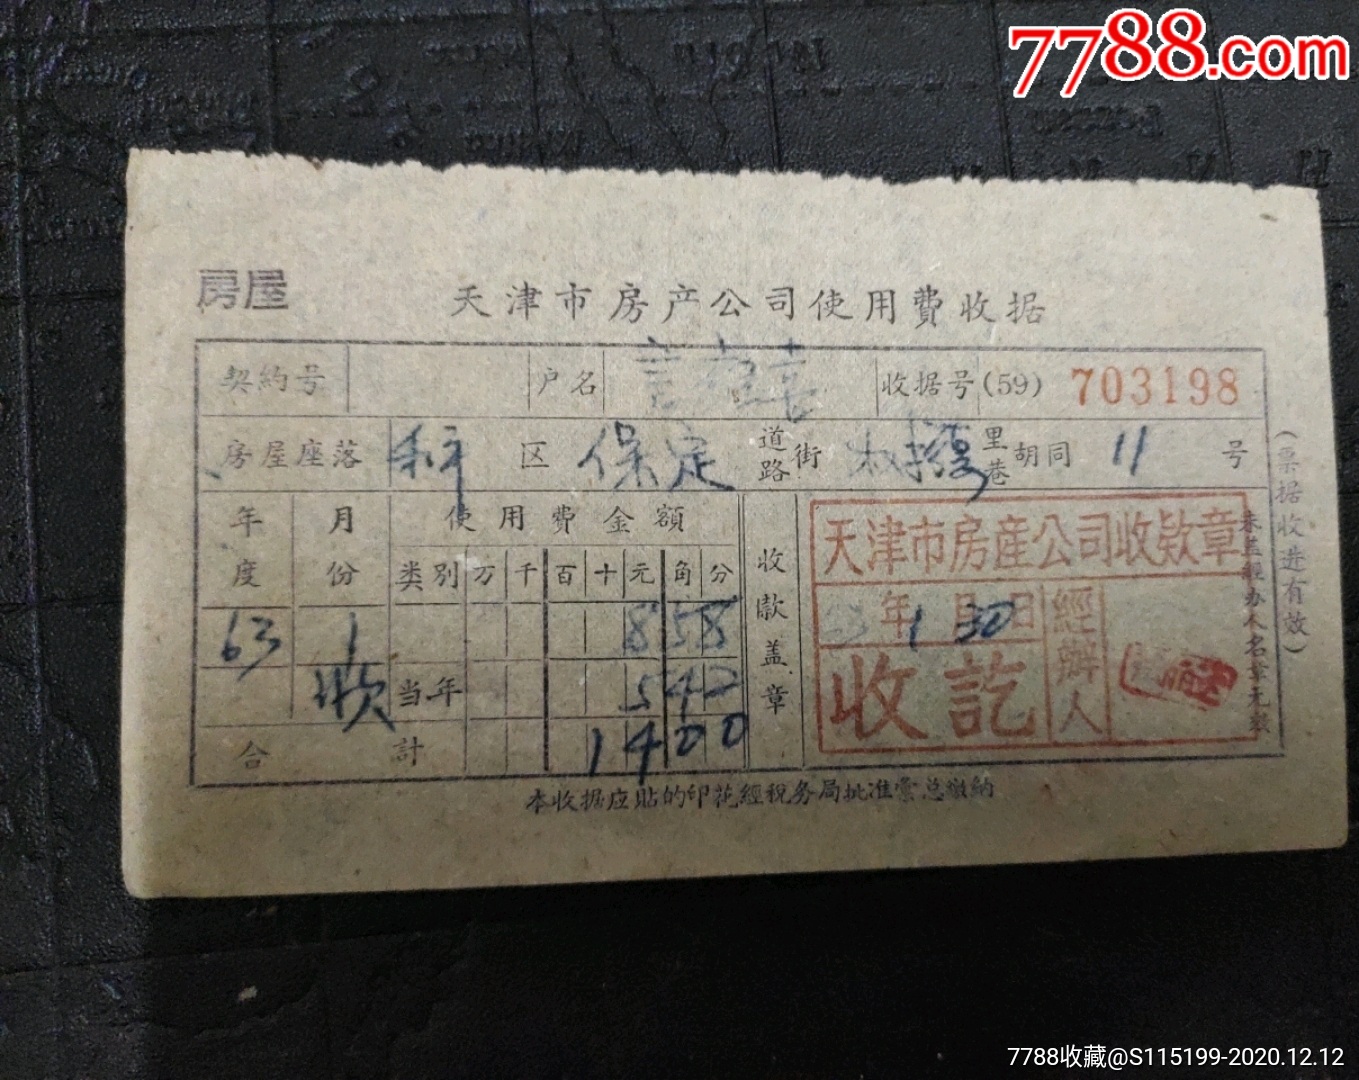 7788.com
房屋
天津市房产公司使用费收据
契約号 户名 收据号(59) 703198
房屋座落 和平 区 保定 道路街 里巷胡同 11 号
年度 月份 使用費金額 收款盖章
类別 万 千 百 十 元 角 分
63 1 8 5 8
欠 当年 5 4 2
合計 1 4 0 0
天津市房産公司收欵章
年 1 月 30 日 經辦人
收訖
(票据收进有效)
未盖經办人名章无效
本收据应貼的印花經税务局批准彙总繳納
7788收藏@S115199-2020.12.12